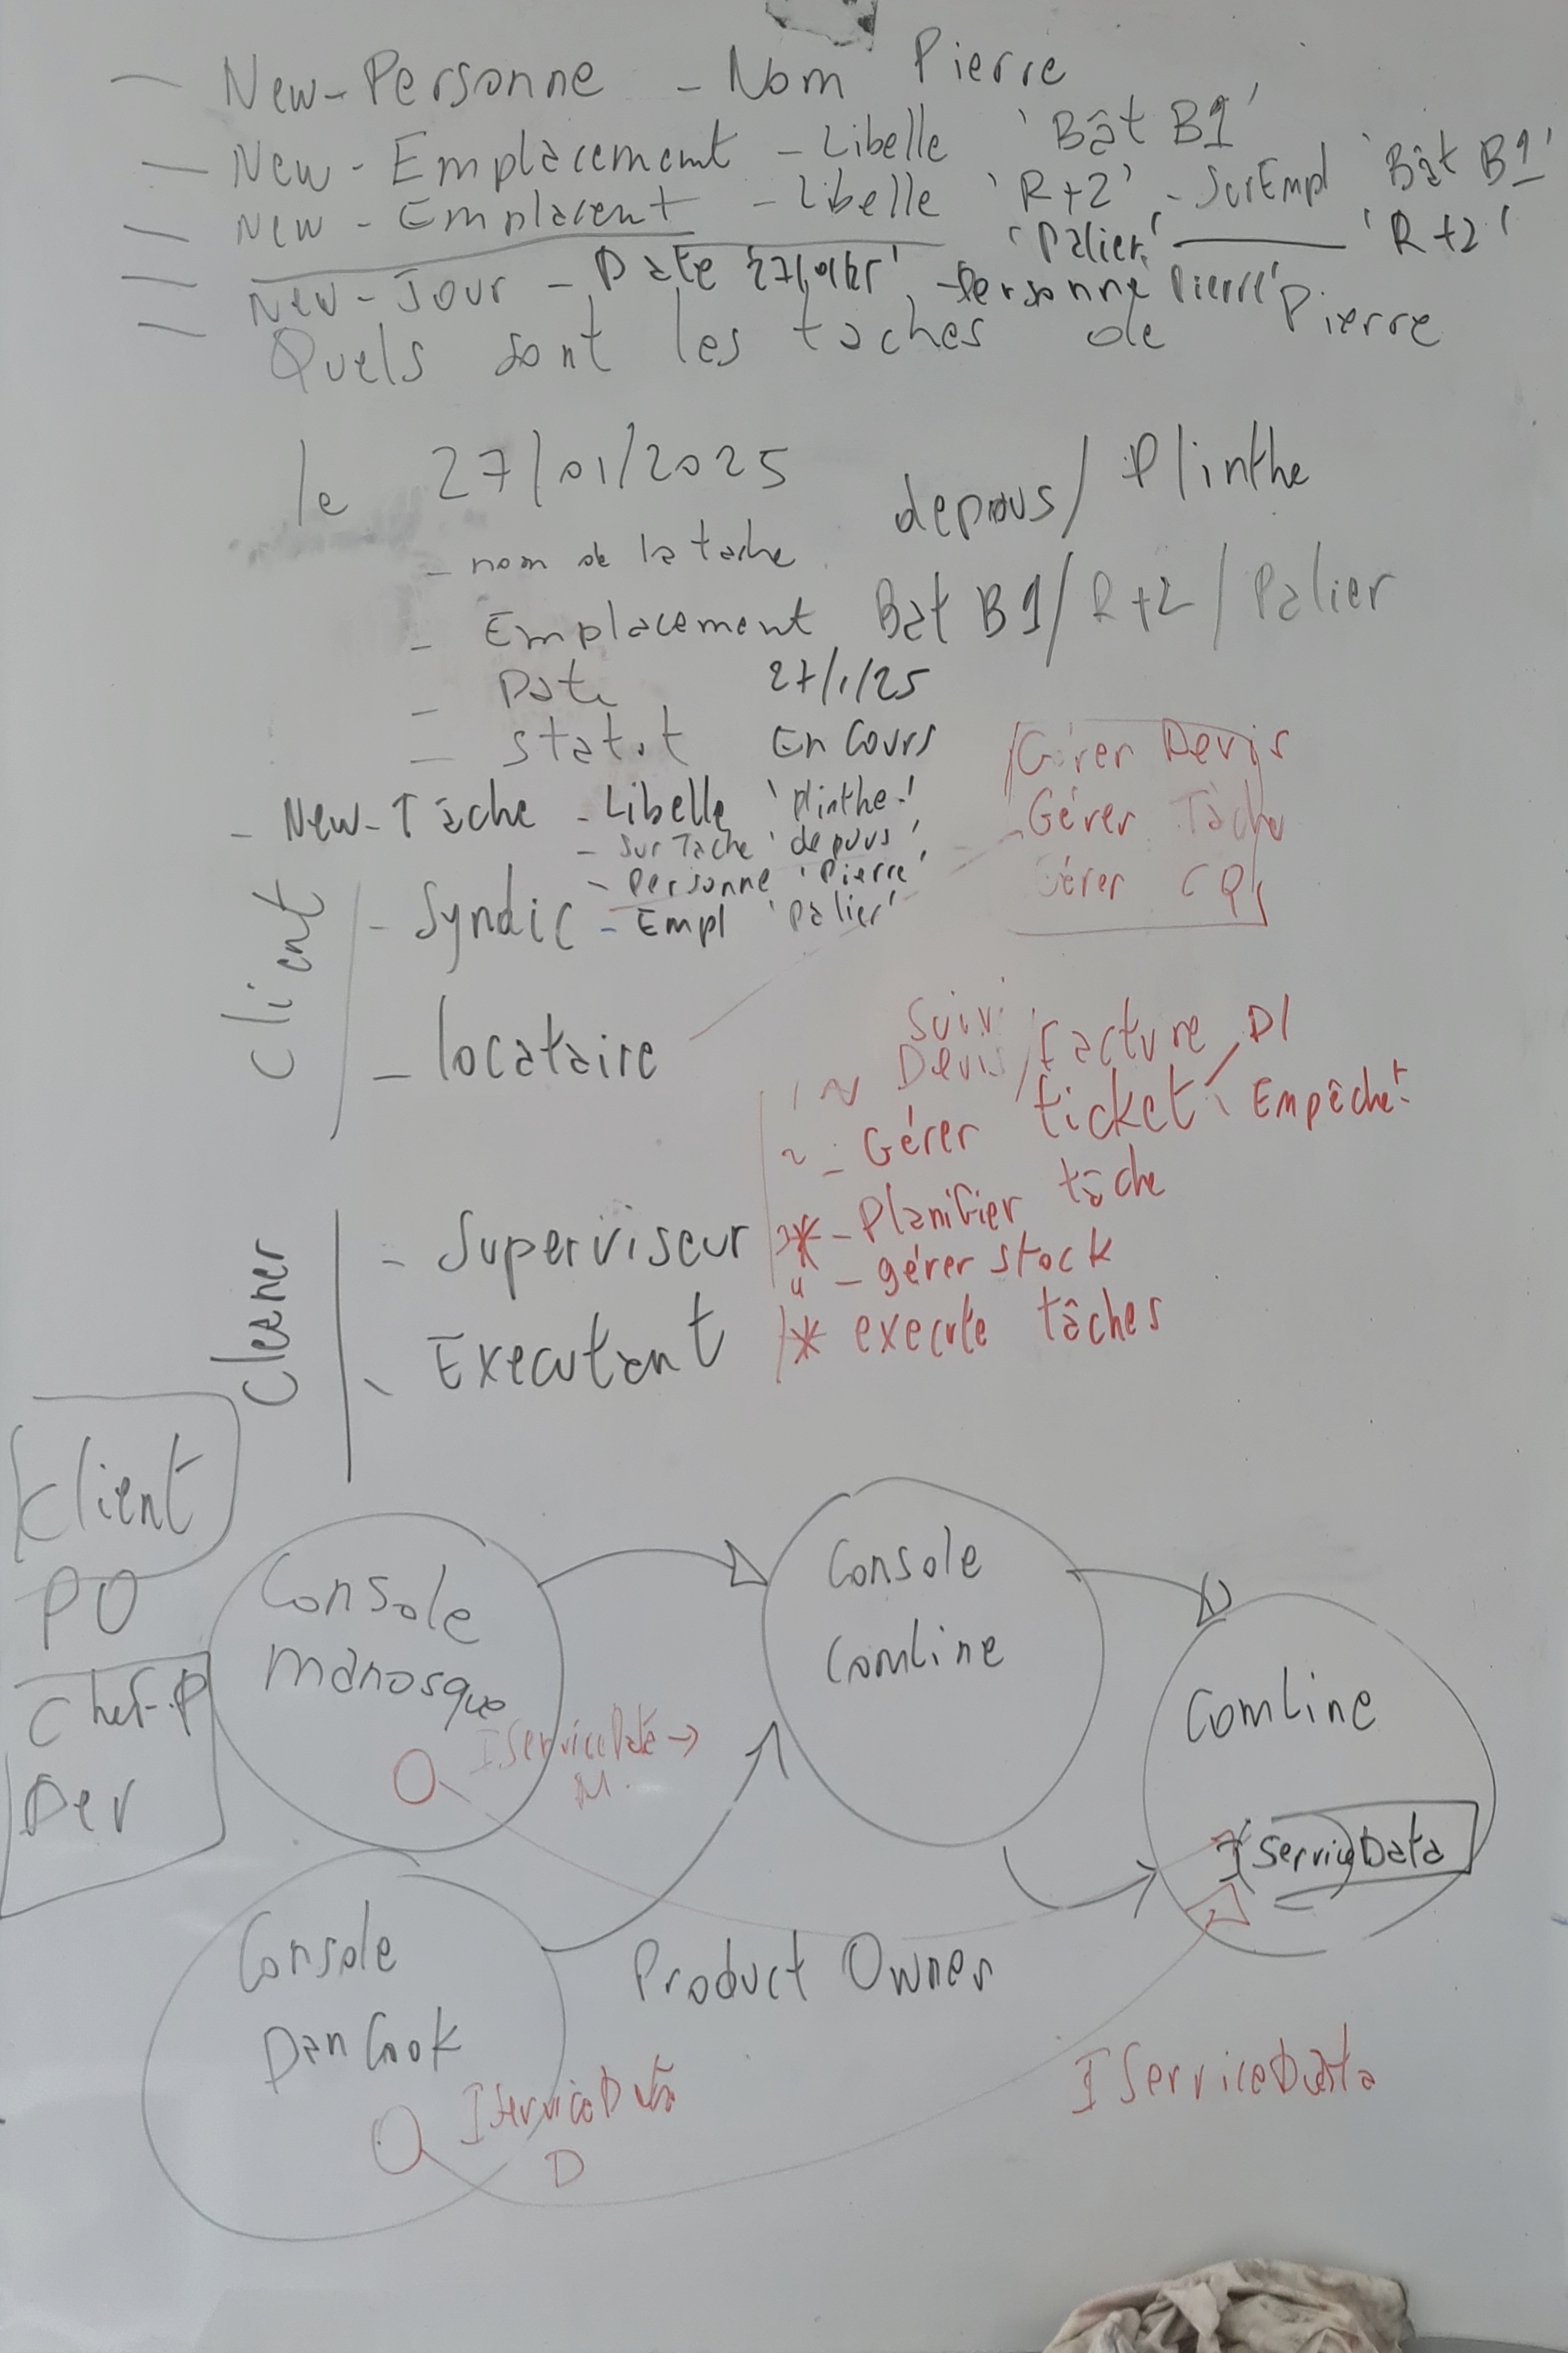 — New-Personne - Nom Pierre
— New-Emplacement - Libelle 'Bât B1'
— New-Emplacent - Libelle 'R+2' - SurEmpl 'Bât B1'
— 'Palier' 'R+2'
— New-Jour - Date - Personne 'Pierre'
Quels sont les taches de Pierre
le 27/01/2025
- nom de la tache depous/Plinthe
- Emplacement Bat B1/R+2/Palier
- Date 27/1/25
- Statut En Cours
- New-Tâche - Libelle 'plinthe'
- SurTache 'depous'
- Personne 'Pierre'
- Empl 'Palier'
Gérer Devis
Gérer Tâche
Gérer
Client
- Syndic
- locataire
Cleaner
- Superviseur
- Executant
Suivi
Devis/Facture
- Gérer ticket DI
Empêche
* - Planifier tâche
- gérer stock
* execute tâches
Client
PO
Chef-P
Dev
Console
Manosque
IServiceData →
M.
Console
Comline
Comline
IServiceData
Console
DanCook
IServiceData
D
Product Owner
IServiceData